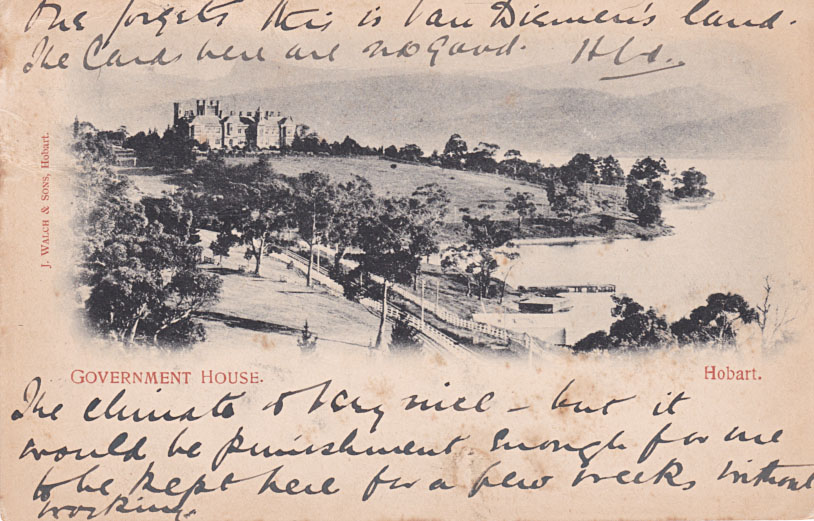 One forgets this is Van Diemen's land.
The Cards here are no Good. 
J. WALCH & SONS, Hobart.
GOVERNMENT HOUSE.
Hobart.
The climate is very nice – but it
would be punishment enough for me
to be kept here for a few weeks without
working.